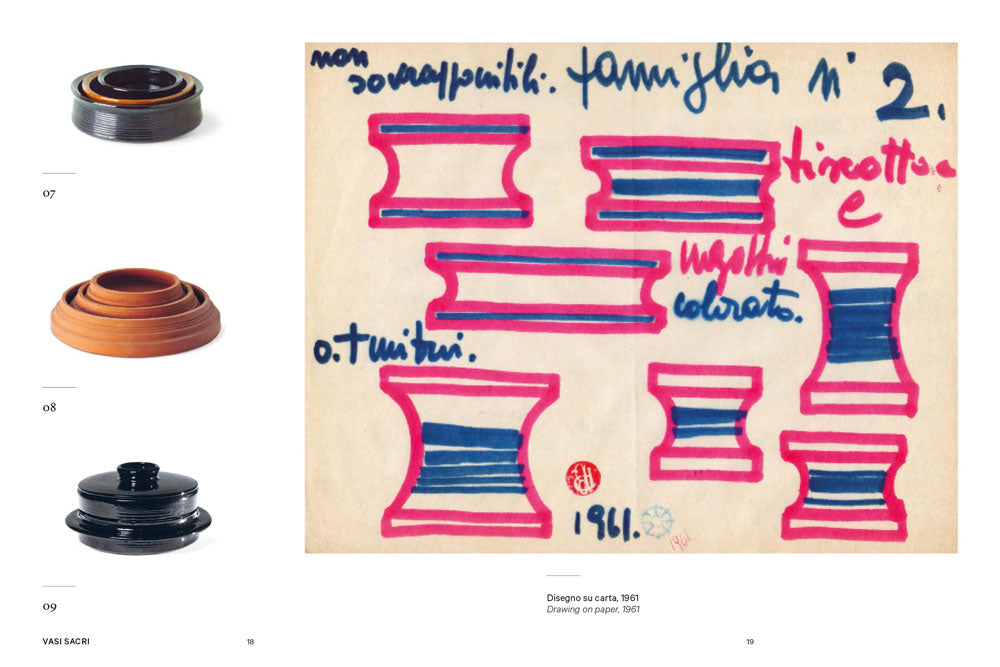 07
08
09
VASI SACRI
18
non
sovrapponibili. famiglia n° 2.
e
colorato.
1961.
1961
Disegno su carta, 1961
Drawing on paper, 1961
19